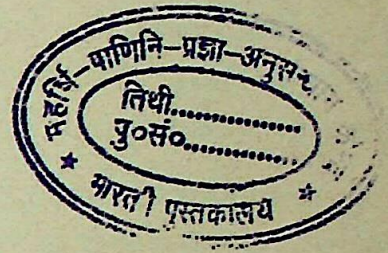 महर्षि-पाणिनि-प्रज्ञा-अनुस
तिथी..................
पु०सं०..................
★ भारती पुस्तकालय ★